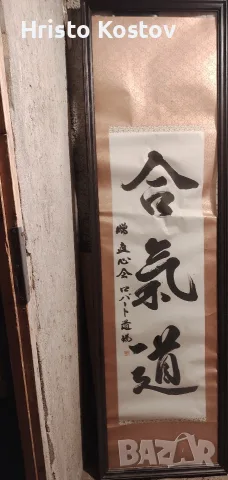 Hristo Kostov
合氣道
贈 直心会 ロバート道場
BAZAR